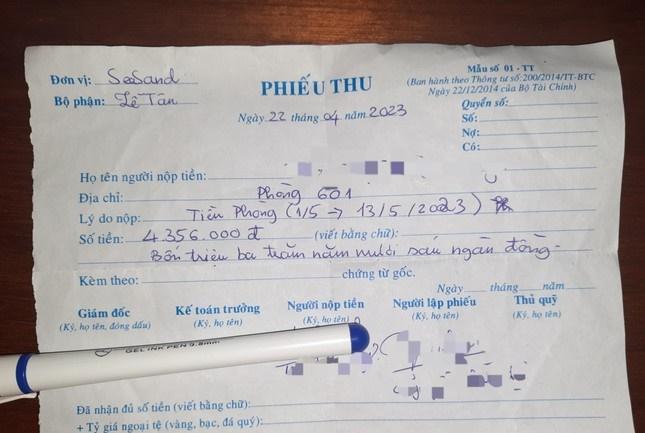 Đơn vị: SeaSand
Bộ phận: Lễ Tân
PHIẾU THU
Ngày 22 tháng 04 năm 2023
Mẫu số 01 - TT
(Ban hành theo Thông tư số: 200/2014/TT-BTC
Ngày 22/12/2014 của Bộ Tài Chính)
Quyển số:
Số:
Nợ:
Có:
Họ tên người nộp tiền:
Địa chỉ: Phòng 601
Lý do nộp: Tiền Phòng (1/5 → 13/5/2023)
Số tiền: 4.356.000đ (viết bằng chữ):
Bốn triệu ba trăm năm mươi sáu ngàn đồng.
Kèm theo: chứng từ gốc.
Ngày tháng năm
Giám đốc Kế toán trưởng Người nộp tiền Người lập phiếu Thủ quỹ
(Ký, họ tên, đóng dấu) (Ký, họ tên) (Ký, họ tên) (Ký, họ tên) (Ký, họ tên)
GEL INK PEN 0.8mm
Đã nhận đủ số tiền (viết bằng chữ):
+ Tỷ giá ngoại tệ (vàng, bạc, đá quý):